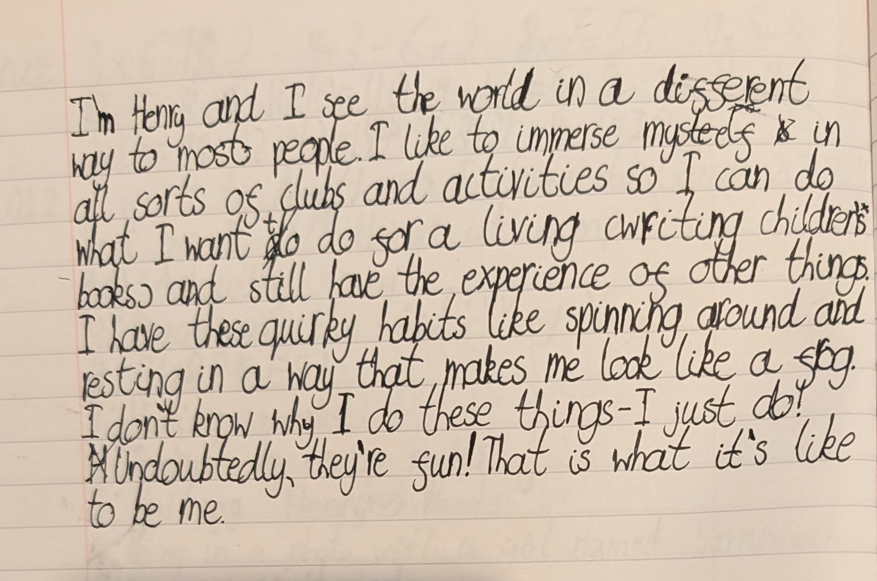 I'm Henry and I see the world in a different
way to most people. I like to immerse myself in
all sorts of clubs and activities so I can do
what I want to do for a living (writing children's
books) and still have the experience of other things.
I have these quirky habits like spinning around and
resting in a way that makes me look like a frog.
I don't know why I do these things-I just do!
Undoubtedly, they're fun! That is what it's like
to be me.